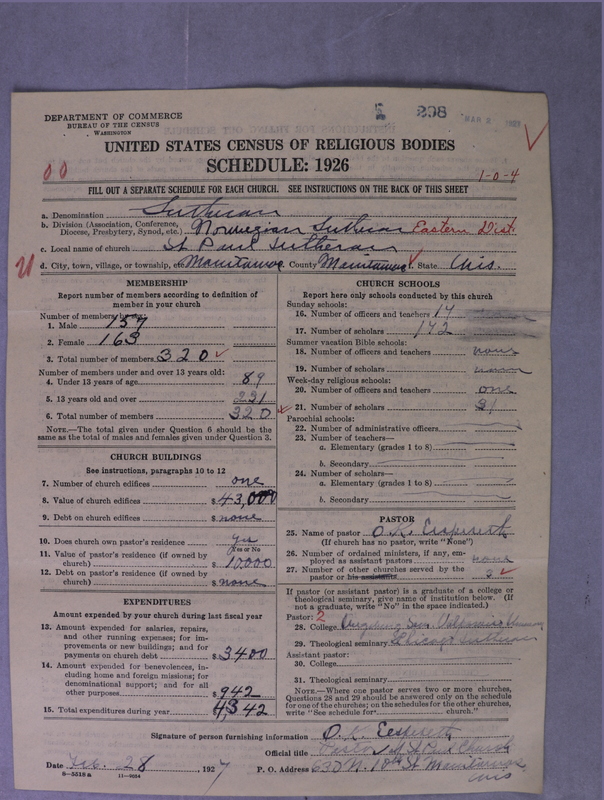 DEPARTMENT OF COMMERCE
BUREAU OF THE CENSUS
WASHINGTON
298
MAR 2
UNITED STATES CENSUS OF RELIGIOUS BODIES
SCHEDULE: 1926
00
1-0-4
FILL OUT A SEPARATE SCHEDULE FOR EACH CHURCH. SEE INSTRUCTIONS ON THE BACK OF THIS SHEET
a. Denomination Lutheran
b. Division (Association, Conference, Diocese, Presbytery, Synod, etc.) Norwegian Lutheran Eastern Dist.
c. Local name of church St Paul Lutheran
d. City, town, village, or township, etc. Manitowoc County Manitowoc State Wis.
MEMBERSHIP
Report number of members according to definition of member in your church
Number of members by sex:
1. Male 157
2. Female 163
3. Total number of members 320
Number of members under and over 13 years old:
4. Under 13 years of age 89
5. 13 years old and over 231
6. Total number of members 320
NOTE.—The total given under Question 6 should be the same as the total of males and females given under Question 3.
CHURCH BUILDINGS
See instructions, paragraphs 10 to 12
7. Number of church edifices one
8. Value of church edifices $43,000
9. Debt on church edifices $none
10. Does church own pastor's residence? yes
Yes or No
11. Value of pastor's residence (if owned by church) $10,000
12. Debt on pastor's residence (if owned by church) $none
EXPENDITURES
Amount expended by church during last fiscal year
13. Amount expended for salaries, repairs, and other running expenses; for improvements or new building; and for payments on church debt $3400
14. Amount expended for benevolences, including home and foreign missions; for denominational support; and for all other purposes $942
15. Total expenditures during year 4342
CHURCH SCHOOLS
Report here only schools conducted by this church
Sunday schools:
16. Number of officers and teachers 14
17. Number of scholars 142
Summer vacation Bible schools:
18. Number of officers and teachers none
19. Number of scholars
Week-day religious schools:
20. Number of officers and teachers one
21. Number of scholars 31
Parochial schools:
22. Number of administrative officers
23. Number of teachers—
a. Elementary (grades 1 to 8)
b. Secondary
24. Number of scholars—
a. Elementary (grades 1 to 8)
b. Secondary
PASTOR
25. Name of pastor O. K.
(If church has no pastor, write "None")
26. Number of ordained ministers, if any, employed as assistant pastors none
27. Number of other churches served by the pastor or his assistants
If pastor (or assistant pastor) is a graduate of a college or theological seminary, give name of institution below. (If not a graduate, write "No" in the space indicated.)
Pastor: 2
28. College Augsburg Sem. Valparaiso
29. Theological seminary Chicago Lutheran
Assistant pastor:
30. College
31. Theological seminary
NOTE.—Where one pastor serves two or more churches, Questions 28 and 29 should be answered only on the schedule for one of the churches; on the schedules for the other churches, write "See schedule for church."
Signature of person furnishing information O. K.
Official title Pastor of St Paul Church
Date Feb. 28, 1927
P. O. Address 630 N. 10th St Manitowoc Wis
8—5518 a